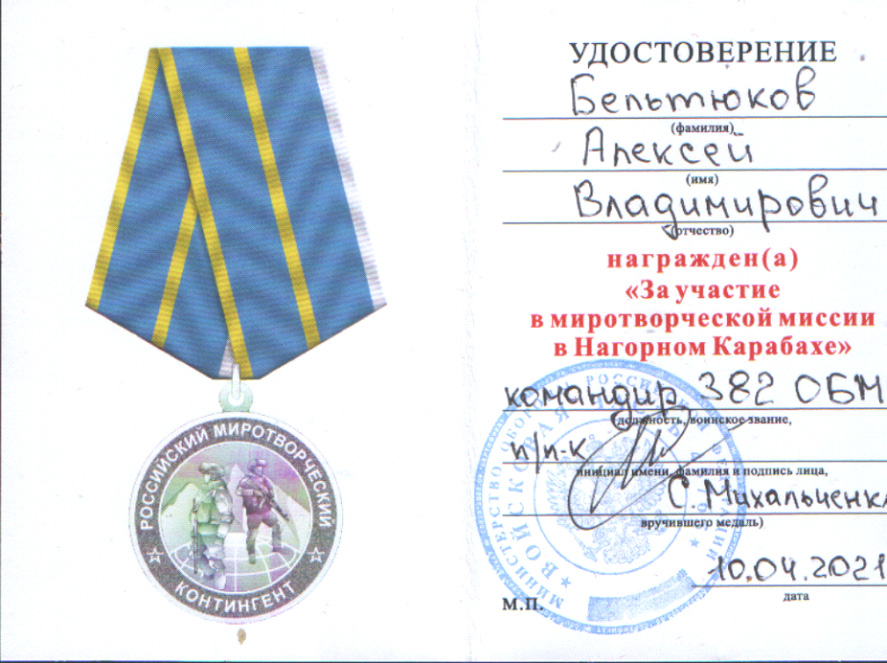 РОССИЙСКИЙ МИРОТВОРЧЕСКИЙ
КОНТИНГЕНТ
УДОСТОВЕРЕНИЕ
Бельтюков
(фамилия)
Алексей
(имя)
Владимирович
(отчество)
награжден(а)
«За участие
в миротворческой миссии
в Нагорном Карабахе»
командир 382 ОБМ
(должность, воинское звание,
п/п-к
инициал имени, фамилия и подпись лица,
С. Михальченк
вручившего медаль)
10.04.2021
дата
М.П.
МИНИСТЕРСТВО ОБОРОНЫ РОССИЙСКОЙ ФЕДЕРАЦИИ
ВОЙСКОВАЯ